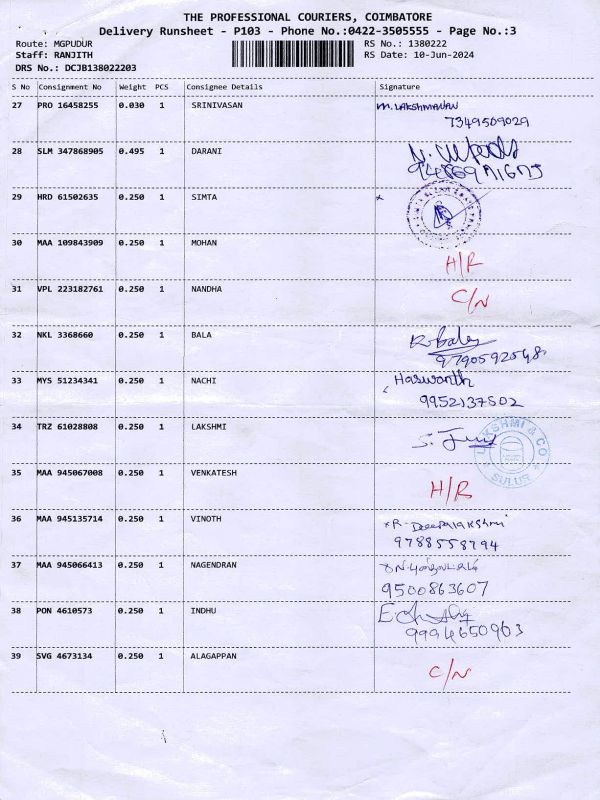 THE PROFESSIONAL COURIERS, COIMBATORE
Delivery Runsheet - P103 - Phone No.:0422-3505555 - Page No.:3
Route: MGPUDUR RS No.: 1380222
Staff: RANJITH RS Date: 10-Jun-2024
DRS No.: DCJB138022203
S No Consignment No Weight PCS Consignee Details Signature
27 PRO 16458255 0.030 1 SRINIVASAN M. LAKSHMANAN
7349509029
28 SLM 347868905 0.495 1 DARANI
29 HRD 61502635 0.250 1 SIMTA
30 MAA 109843909 0.250 1 MOHAN H/R
31 VPL 223182761 0.250 1 NANDHA C/N
32 NKL 3368660 0.250 1 BALA R. Bala
9790592548
33 MYS 51234341 0.250 1 NACHI Haswanth
9952137502
34 TRZ 61028808 0.250 1 LAKSHMI S.
LAKSHMI & CO
SULUR
35 MAA 945067008 0.250 1 VENKATESH H/R
36 MAA 945135714 0.250 1 VINOTH R. Deepalakshmi
9788558794
37 MAA 945066413 0.250 1 NAGENDRAN
9500863607
38 PON 4610573 0.250 1 INDHU
9994650963
39 SVG 4673134 0.250 1 ALAGAPPAN C/N